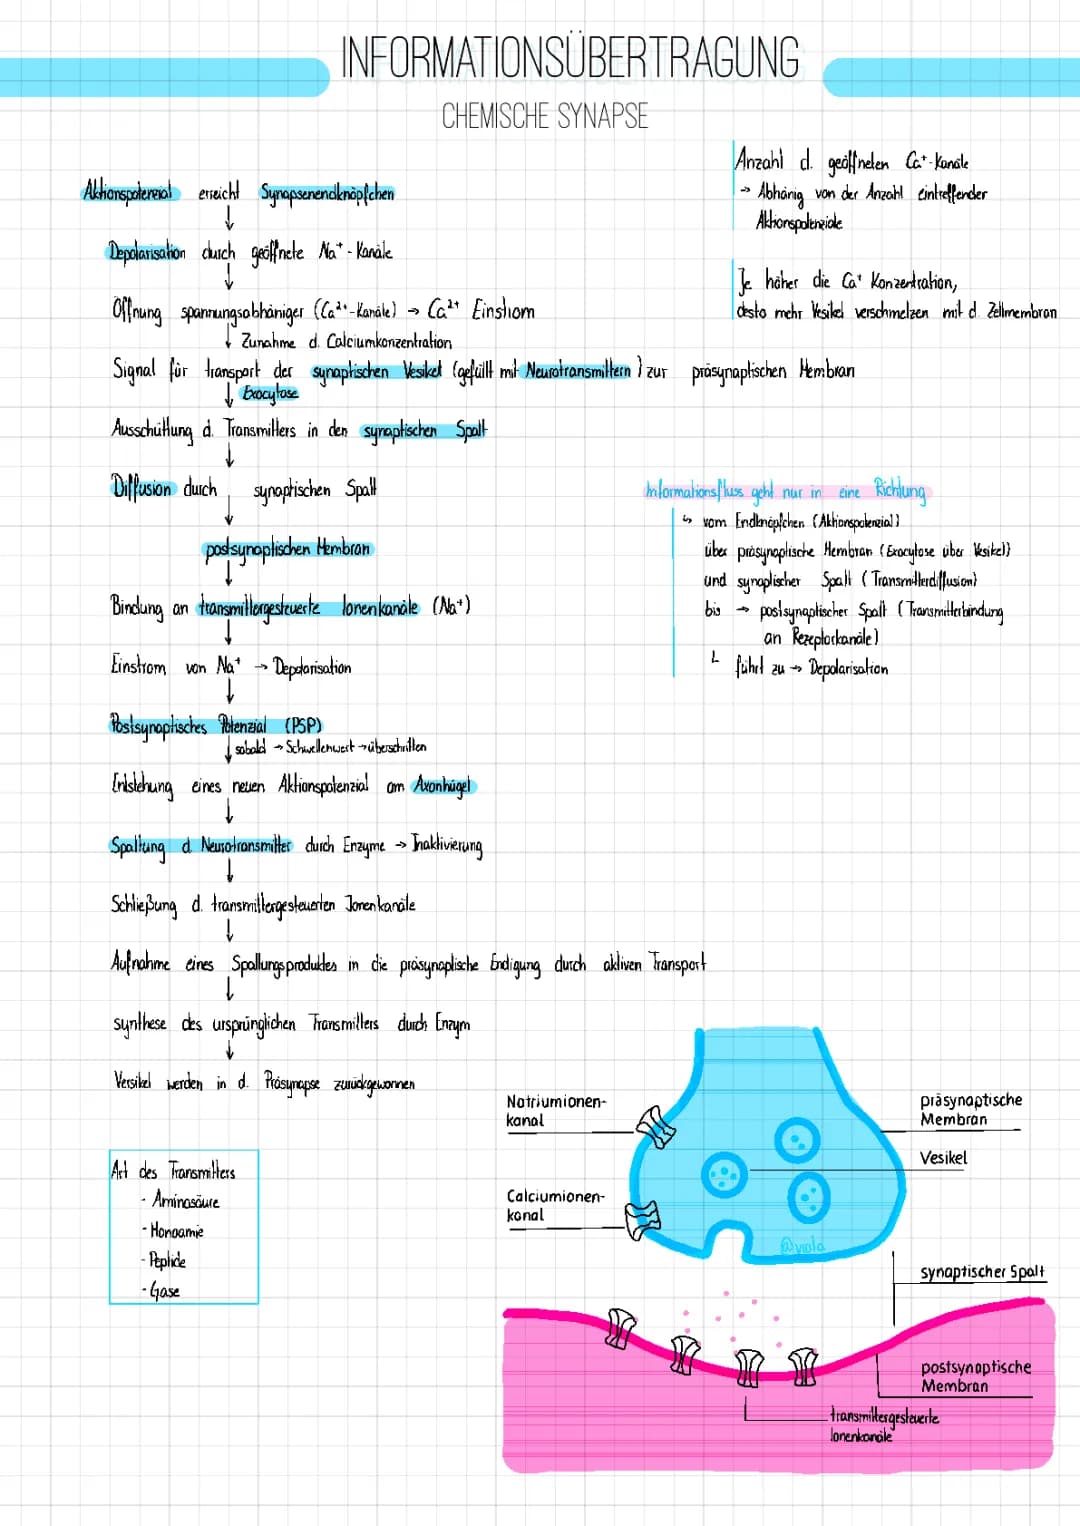 INFORMATIONSÜBERTRAGUNG
CHEMISCHE SYNAPSE
Anzahl d. geöffneten Ca⁺-Kanäle
→ Abhänig von der Anzahl eintreffender
Aktionspotenziale
Je höher die Ca⁺ Konzentration,
desto mehr Vesikel verschmelzen mit d. Zellmembran
Aktionspotenzial erreicht Synapsenendknöpfchen
↓
Depolarisation durch geöffnete Na⁺-Kanäle
↓
Öffnung spannungsabhäniger (Ca²⁺-Kanäle) → Ca²⁺ Einstrom
↓ Zunahme d. Calciumkonzentration
Signal für transport der synaptischen Vesikel (gefüllt mit Neurotransmittern) zur präsynaptischen Membran
↓ Exocytose
Ausschüttung d. Transmitters in den synaptischen Spalt
↓
Diffusion durch synaptischen Spalt
↓
postsynaptischen Membran
↓
Bindung an transmittergesteuerte Ionenkanäle (Na⁺)
↓
Einstrom von Na⁺ → Depolarisation
↓
Postsynaptisches Potenzial (PSP)
↓ sobald → Schwellenwert → überschritten
Entstehung eines neuen Aktionspotenzial am Axonhügel
↓
Spaltung d Neurotransmitter durch Enzyme → Inaktivierung
↓
Schließung d. transmittergesteuerten Ionenkanäle
↓
Aufnahme eines Spaltungsproduktes in die präsynaptische Endigung durch aktiven Transport
↓
synthese des ursprünglichen Transmitters durch Enzym
↓
Versikel werden in d. Präsynapse zurückgewonnen
Informationsfluss geht nur in eine Richtung
↳ vom Endknöpfchen (Aktionspotenzial)
über präsynaptische Membran (Exocytose über Vesikel)
und synaptischer Spalt (Transmitterdiffusion)
bis → postsynaptischer Spalt (Transmitterbindung
an Rezeptorkanäle)
↳ führt zu → Depolarisation
Art des Transmitters
- Aminosäure
- Monoamie
- Peptide
- Gase
Natriumionen-
kanal
Calciumionen-
kanal
präsynaptische
Membran
Vesikel
@viola
synaptischer Spalt
postsynaptische
Membran
transmittergesteuerte
Ionenkanäle